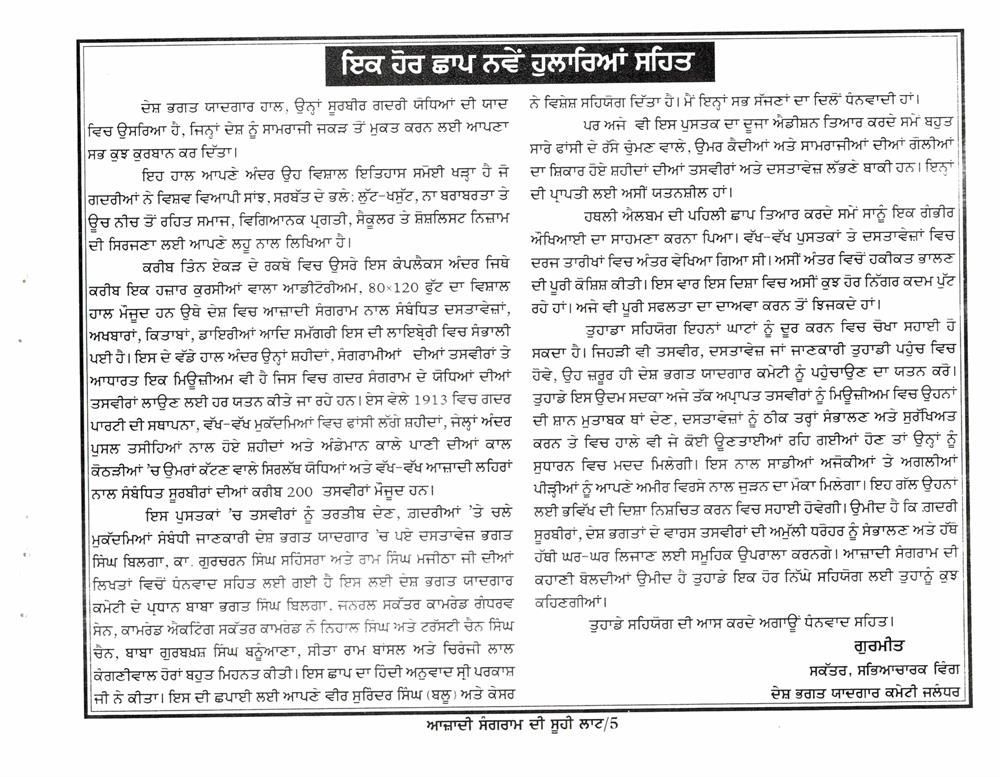 ਇਕ ਹੋਰ ਛਾਪ ਨਵੇਂ ਹੁਲਾਰਿਆਂ ਸਹਿਤ
ਦੇਸ਼ ਭਗਤ ਯਾਦਗਾਰ ਹਾਲ, ਉਨ੍ਹਾਂ ਸੂਰਬੀਰ ਗਦਰੀ ਯੋਧਿਆਂ ਦੀ ਯਾਦ
ਵਿਚ ਉਸਰਿਆ ਹੈ, ਜਿਨ੍ਹਾਂ ਦੇਸ਼ ਨੂੰ ਸਾਮਰਾਜੀ ਜਕੜ ਤੋਂ ਮੁਕਤ ਕਰਨ ਲਈ ਆਪਣਾ
ਸਭ ਕੁਝ ਕੁਰਬਾਨ ਕਰ ਦਿੱਤਾ।
ਇਹ ਹਾਲ ਆਪਣੇ ਅੰਦਰ ਉਹ ਵਿਸ਼ਾਲ ਇਤਿਹਾਸ ਸਮੋਈ ਖੜ੍ਹਾ ਹੈ ਜੋ
ਗਦਰੀਆਂ ਨੇ ਵਿਸ਼ਵ ਵਿਆਪੀ ਸਾਂਝ, ਸਰਬੱਤ ਦੇ ਭਲੇ; ਲੁੱਟ-ਖਸੁੱਟ, ਨਾ ਬਰਾਬਰਤਾ ਤੇ
ਊਚ ਨੀਚ ਤੋਂ ਰਹਿਤ ਸਮਾਜ, ਵਿਗਿਆਨਕ ਪ੍ਰਗਤੀ, ਸੈਕੂਲਰ ਤੇ ਸ਼ੋਸ਼ਲਿਸਟ ਨਿਜ਼ਾਮ
ਦੀ ਸਿਰਜਣਾ ਲਈ ਆਪਣੇ ਲਹੂ ਨਾਲ ਲਿਖਿਆ ਹੈ।
ਕਰੀਬ ਤਿੰਨ ਏਕੜ ਦੇ ਰਕਬੇ ਵਿਚ ਉਸਰੇ ਇਸ ਕੰਪਲੈਕਸ ਅੰਦਰ ਜਿਥੇ
ਕਰੀਬ ਇਕ ਹਜ਼ਾਰ ਕੁਰਸੀਆਂ ਵਾਲਾ ਆਡੀਟੋਰੀਅਮ, 80×120 ਫੁੱਟ ਦਾ ਵਿਸ਼ਾਲ
ਹਾਲ ਮੌਜੂਦ ਹਨ ਉਥੇ ਦੇਸ਼ ਵਿਚ ਆਜ਼ਾਦੀ ਸੰਗਰਾਮ ਨਾਲ ਸੰਬੰਧਿਤ ਦਸਤਾਵੇਜ਼ਾਂ,
ਅਖਬਾਰਾਂ, ਕਿਤਾਬਾਂ, ਡਾਇਰੀਆਂ ਆਦਿ ਸਮੱਗਰੀ ਇਸ ਦੀ ਲਾਇਬ੍ਰੇਰੀ ਵਿਚ ਸੰਭਾਲੀ
ਪਈ ਹੈ। ਇਸ ਦੇ ਵੱਡੇ ਹਾਲ ਅੰਦਰ ਉਨ੍ਹਾਂ ਸ਼ਹੀਦਾਂ, ਸੰਗਰਾਮੀਆਂ ਦੀਆਂ ਤਸਵੀਰਾਂ ਤੇ
ਆਧਾਰਤ ਇਕ ਮਿਊਜ਼ੀਅਮ ਵੀ ਹੈ ਜਿਸ ਵਿਚ ਗਦਰ ਸੰਗਰਾਮ ਦੇ ਯੋਧਿਆਂ ਦੀਆਂ
ਤਸਵੀਰਾਂ ਲਾਉਣ ਲਈ ਹਰ ਯਤਨ ਕੀਤੇ ਜਾ ਰਹੇ ਹਨ। ਏਸ ਵੇਲੇ 1913 ਵਿਚ ਗਦਰ
ਪਾਰਟੀ ਦੀ ਸਥਾਪਨਾ, ਵੱਖ-ਵੱਖ ਮੁਕੱਦਮਿਆਂ ਵਿਚ ਫਾਂਸੀ ਲੱਗੇ ਸ਼ਹੀਦਾਂ, ਜੇਲ੍ਹਾਂ ਅੰਦਰ
ਪੁਲਸ ਤਸੀਹਿਆਂ ਨਾਲ ਹੋਏ ਸ਼ਹੀਦਾਂ ਅਤੇ ਅੰਡੇਮਾਨ ਕਾਲੇ ਪਾਣੀ ਦੀਆਂ ਕਾਲ
ਕੋਠੜੀਆਂ 'ਚ ਉਮਰਾਂ ਕੱਟਣ ਵਾਲੇ ਸਿਰਲੱਥ ਯੋਧਿਆਂ ਅਤੇ ਵੱਖ-ਵੱਖ ਆਜ਼ਾਦੀ ਲਹਿਰਾਂ
ਨਾਲ ਸੰਬੰਧਿਤ ਸੂਰਬੀਰਾਂ ਦੀਆਂ ਕਰੀਬ 200 ਤਸਵੀਰਾਂ ਮੌਜੂਦ ਹਨ।
ਇਸ ਪੁਸਤਕਾਂ 'ਚ ਤਸਵੀਰਾਂ ਨੂੰ ਤਰਤੀਬ ਦੇਣ, ਗ਼ਦਰੀਆਂ 'ਤੇ ਚਲੇ
ਮੁਕੱਦਮਿਆਂ ਸੰਬੰਧੀ ਜਾਣਕਾਰੀ ਦੇਸ਼ ਭਗਤ ਯਾਦਗਾਰ 'ਚ ਪਏ ਦਸਤਾਵੇਜ਼ ਭਗਤ
ਸਿੰਘ ਬਿਲਗਾ, ਕਾ. ਗੁਰਚਰਨ ਸਿੰਘ ਸਹਿੰਸਰਾ ਅਤੇ ਰਾਮ ਸਿੰਘ ਮਜੀਠਾ ਜੀ ਦੀਆਂ
ਲਿਖਤਾਂ ਵਿਚੋਂ ਧੰਨਵਾਦ ਸਹਿਤ ਲਈ ਗਈ ਹੈ ਇਸ ਲਈ ਦੇਸ਼ ਭਗਤ ਯਾਦਗਾਰ
ਕਮੇਟੀ ਦੇ ਪ੍ਰਧਾਨ ਬਾਬਾ ਭਗਤ ਸਿੰਘ ਬਿਲਗਾ, ਜਨਰਲ ਸਕੱਤਰ ਕਾਮਰੇਡ ਗੰਧਰਵ
ਸੇਨ, ਕਾਮਰੇਡ ਐਕਟਿੰਗ ਸਕੱਤਰ ਕਾਮਰੇਡ ਨੌ ਨਿਹਾਲ ਸਿੰਘ ਅਤੇ ਟਰੱਸਟੀ ਚੈਨ ਸਿੰਘ
ਚੈਨ, ਬਾਬਾ ਗੁਰਬਖ਼ਸ਼ ਸਿੰਘ ਬਨੂੰਆਣਾ, ਸੀਤਾ ਰਾਮ ਬਾਂਸਲ ਅਤੇ ਚਿਰੰਜੀ ਲਾਲ
ਕੰਗਣੀਵਾਲ ਹੋਰਾਂ ਬਹੁਤ ਮਿਹਨਤ ਕੀਤੀ। ਇਸ ਛਾਪ ਦਾ ਹਿੰਦੀ ਅਨੁਵਾਦ ਸ੍ਰੀ ਪਰਕਾਸ਼
ਜੀ ਨੇ ਕੀਤਾ। ਇਸ ਦੀ ਛਪਾਈ ਲਈ ਆਪਣੇ ਵੀਰ ਸੁਰਿੰਦਰ ਸਿੰਘ (ਬਲੂ) ਅਤੇ ਕੇਸਰ
ਨੇ ਵਿਸ਼ੇਸ਼ ਸਹਿਯੋਗ ਦਿੱਤਾ ਹੈ। ਮੈਂ ਇਨ੍ਹਾਂ ਸਭ ਸੱਜਣਾਂ ਦਾ ਦਿਲੋਂ ਧੰਨਵਾਦੀ ਹਾਂ।
ਪਰ ਅਜੇ ਵੀ ਇਸ ਪੁਸਤਕ ਦਾ ਦੂਜਾ ਐਡੀਸ਼ਨ ਤਿਆਰ ਕਰਦੇ ਸਮੇਂ ਬਹੁਤ
ਸਾਰੇ ਫਾਂਸੀ ਦੇ ਰੱਸੇ ਚੁੰਮਣ ਵਾਲੇ, ਉਮਰ ਕੈਦੀਆਂ ਅਤੇ ਸਾਮਰਾਜੀਆਂ ਦੀਆਂ ਗੋਲੀਆਂ
ਦਾ ਸ਼ਿਕਾਰ ਹੋਏ ਸ਼ਹੀਦਾਂ ਦੀਆਂ ਤਸਵੀਰਾਂ ਅਤੇ ਦਸਤਾਵੇਜ਼ ਲੱਭਣੇ ਬਾਕੀ ਹਨ। ਇਨ੍ਹਾਂ
ਦੀ ਪ੍ਰਾਪਤੀ ਲਈ ਅਸੀਂ ਯਤਨਸ਼ੀਲ ਹਾਂ।
ਹਥਲੀ ਐਲਬਮ ਦੀ ਪਹਿਲੀ ਛਾਪ ਤਿਆਰ ਕਰਦੇ ਸਮੇਂ ਸਾਨੂੰ ਇਕ ਗੰਭੀਰ
ਔਖਿਆਈ ਦਾ ਸਾਹਮਣਾ ਕਰਨਾ ਪਿਆ। ਵੱਖ-ਵੱਖ ਪੁਸਤਕਾਂ ਤੇ ਦਸਤਾਵੇਜ਼ਾਂ ਵਿਚ
ਦਰਜ ਤਾਰੀਖਾਂ ਵਿਚ ਅੰਤਰ ਵੇਖਿਆ ਗਿਆ ਸੀ। ਅਸੀਂ ਅੰਤਰ ਵਿਚੋਂ ਹਕੀਕਤ ਭਾਲਣ
ਦੀ ਪੂਰੀ ਕੋਸ਼ਿਸ਼ ਕੀਤੀ। ਇਸ ਵਾਰ ਇਸ ਦਿਸ਼ਾ ਵਿਚ ਅਸੀਂ ਕੁਝ ਹੋਰ ਨਿੱਗਰ ਕਦਮ ਪੁੱਟ
ਰਹੇ ਹਾਂ। ਅਜੇ ਵੀ ਪੂਰੀ ਸਫਲਤਾ ਦਾ ਦਾਅਵਾ ਕਰਨ ਤੋਂ ਝਿਜਕਦੇ ਹਾਂ।
ਤੁਹਾਡਾ ਸਹਿਯੋਗ ਇਹਨਾਂ ਘਾਟਾਂ ਨੂੰ ਦੂਰ ਕਰਨ ਵਿਚ ਚੋਖਾ ਸਹਾਈ ਹੋ
ਸਕਦਾ ਹੈ। ਜਿਹੜੀ ਵੀ ਤਸਵੀਰ, ਦਸਤਾਵੇਜ਼ ਜਾਂ ਜਾਣਕਾਰੀ ਤੁਹਾਡੀ ਪਹੁੰਚ ਵਿਚ
ਹੋਵੇ, ਉਹ ਜ਼ਰੂਰ ਹੀ ਦੇਸ਼ ਭਗਤ ਯਾਦਗਾਰ ਕਮੇਟੀ ਨੂੰ ਪਹੁੰਚਾਉਣ ਦਾ ਯਤਨ ਕਰੋ।
ਤੁਹਾਡੇ ਇਸ ਉਦਮ ਸਦਕਾ ਅਜੇ ਤੱਕ ਅਪ੍ਰਾਪਤ ਤਸਵੀਰਾਂ ਨੂੰ ਮਿਊਜ਼ਿਅਮ ਵਿਚ ਉਹਨਾਂ
ਦੀ ਸ਼ਾਨ ਮੁਤਾਬਕ ਥਾਂ ਦੇਣ, ਦਸਤਾਵੇਜ਼ਾਂ ਨੂੰ ਠੀਕ ਤਰ੍ਹਾਂ ਸੰਭਾਲਣ ਅਤੇ ਸੁਰੱਖਿਅਤ
ਕਰਨ ਤੇ ਵਿਚ ਹਾਲੇ ਵੀ ਜੇ ਕੋਈ ਊਣਤਾਈਆਂ ਰਹਿ ਗਈਆਂ ਹੋਣ ਤਾਂ ਉਨ੍ਹਾਂ ਨੂੰ
ਸੁਧਾਰਨ ਵਿਚ ਮਦਦ ਮਿਲੇਗੀ। ਇਸ ਨਾਲ ਸਾਡੀਆਂ ਅਜੋਕੀਆਂ ਤੇ ਅਗਲੀਆਂ
ਪੀੜ੍ਹੀਆਂ ਨੂੰ ਆਪਣੇ ਅਮੀਰ ਵਿਰਸੇ ਨਾਲ ਜੁੜਨ ਦਾ ਮੌਕਾ ਮਿਲੇਗਾ। ਇਹ ਗੱਲ ਉਹਨਾਂ
ਲਈ ਭਵਿੱਖ ਦੀ ਦਿਸ਼ਾ ਨਿਸ਼ਚਿਤ ਕਰਨ ਵਿਚ ਸਹਾਈ ਹੋਵੇਗੀ। ਉਮੀਦ ਹੈ ਕਿ ਗ਼ਦਰੀ
ਸੂਰਬੀਰਾਂ, ਦੇਸ਼ ਭਗਤਾਂ ਦੇ ਵਾਰਸ ਤਸਵੀਰਾਂ ਦੀ ਅਮੁੱਲੀ ਧਰੋਹਰ ਨੂੰ ਸੰਭਾਲਣ ਅਤੇ ਹੱਥੋ
ਹੱਥੀ ਘਰ-ਘਰ ਲਿਜਾਣ ਲਈ ਸਮੂਹਿਕ ਉਪਰਾਲਾ ਕਰਨਗੇ। ਆਜ਼ਾਦੀ ਸੰਗਰਾਮ ਦੀ
ਕਹਾਣੀ ਬੋਲਦੀਆਂ ਉਮੀਦ ਹੈ ਤੁਹਾਡੇ ਇਕ ਹੋਰ ਨਿੱਘੇ ਸਹਿਯੋਗ ਲਈ ਤੁਹਾਨੂੰ ਕੁਝ
ਕਹਿਣਗੀਆਂ।
ਤੁਹਾਡੇ ਸਹਿਯੋਗ ਦੀ ਆਸ ਕਰਦੇ ਅਗਾਊਂ ਧੰਨਵਾਦ ਸਹਿਤ।
ਗੁਰਮੀਤ
ਸਕੱਤਰ, ਸਭਿਆਚਾਰਕ ਵਿੰਗ
ਦੇਸ਼ ਭਗਤ ਯਾਦਗਾਰ ਕਮੇਟੀ ਜਲੰਧਰ
ਆਜ਼ਾਦੀ ਸੰਗਰਾਮ ਦੀ ਸੂਹੀ ਲਾਟ/5